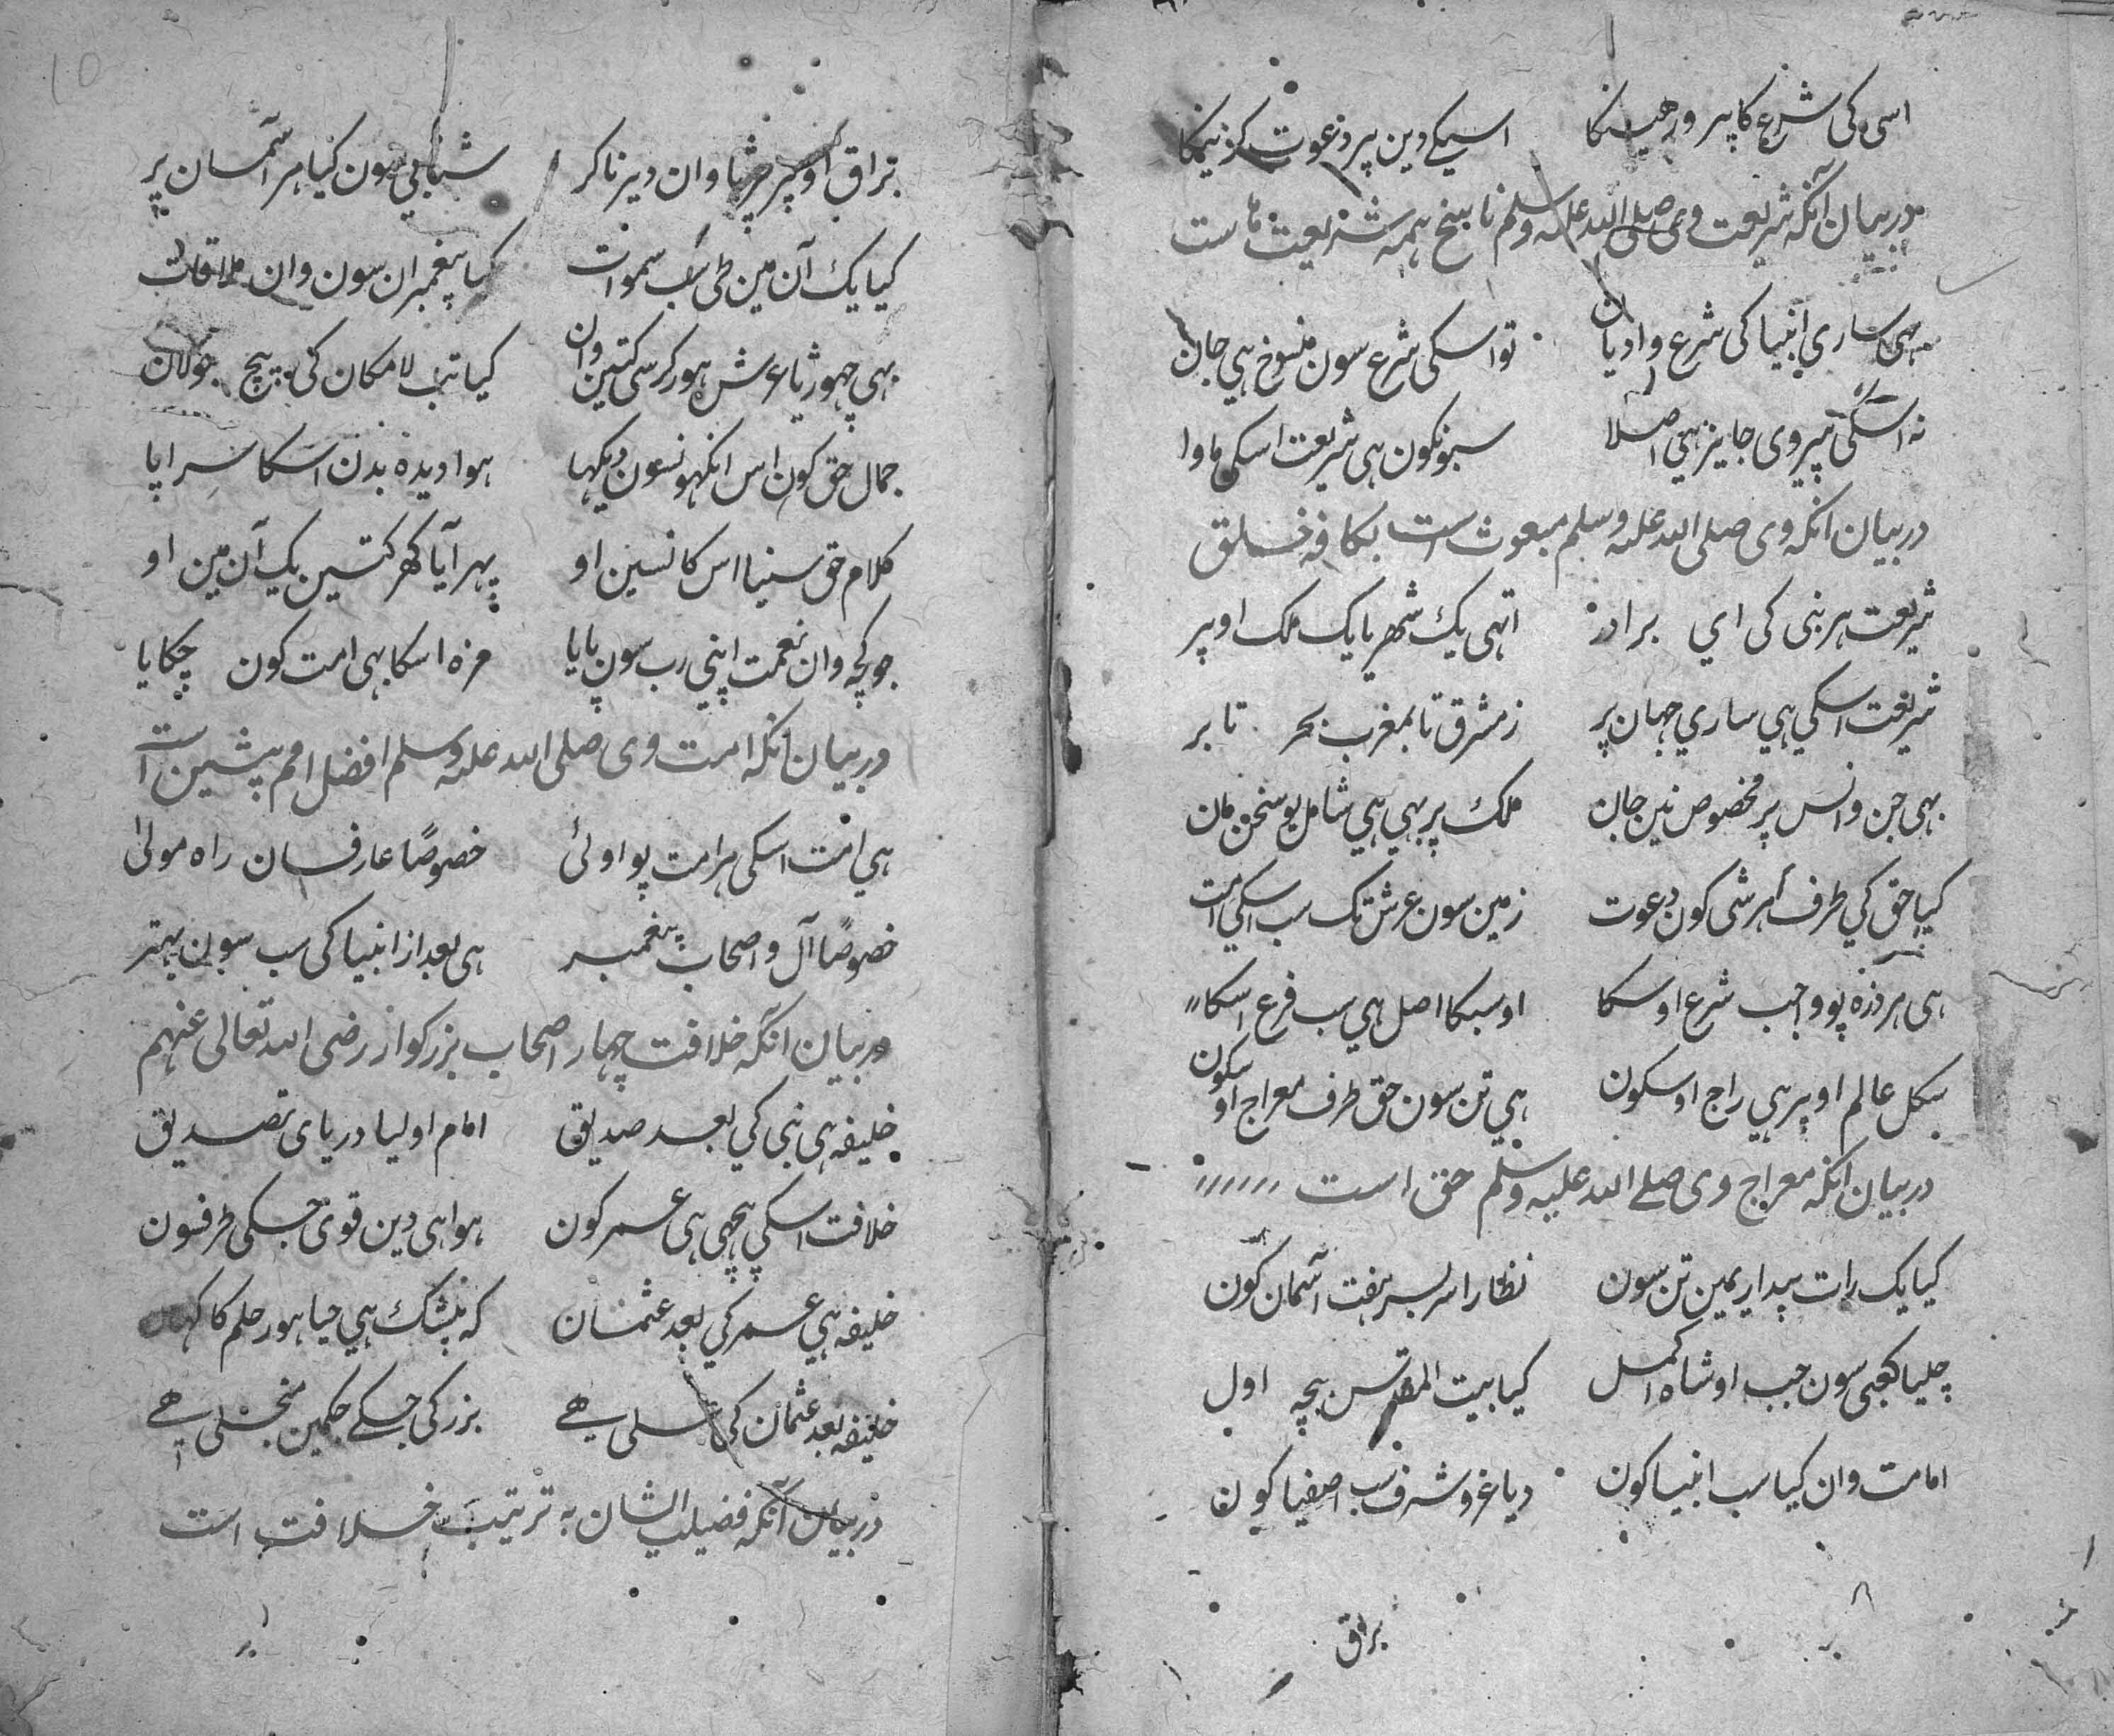 اسی کی شرع کا پیرو رهیگا اسیکے دین پر دعوت کریگا
در بیان آنکه شریعت وی صلی الله علیه وسلم ناسخ همه شریعت هاست
هی ساری انبیا کی شرع و ادیان تو اسکی شرع سون منسوخ هی جان
نه اسکی پیروی جایز هی اصلا سبونکون هی شریعت اسکی ماوا
در بیان انکه وی صلی الله علیه وسلم مبعوث است بکافه خلق
شریعت هر نبی کی ای برادر اتهی یک شهر یا یک ملک اوپر
شریعت اسکی هی ساری جهان پر ز مشرق تا بمغرب بحر تا بر
بهی جن و انس پر مخصوص نین جان ملک پر بهی هی شامل یو سخن مان
کیا حق کی طرف هر شی کون دعوت زمین سون عرش تک سب اسکی امت
هی هر ذره پو واجب شرع اوسکا او سبکا اصل هی سب فرع اسکا
سکل عالم اوپر هی راج اوسکون هی تن سون حق طرف معراج اوسکون
در بیان انکه معراج وی صلے الله علیه وسلم حق است
کیا یک رات بیداری مین تن سون نظارا سر بسر هفت آسمان کون
چلیا کعبی سون جب او شاه اکمل کیا بیت المقدس بیچه اول
امامت وان کیا سب انبیا کون دیا عز و شرف سب اصفیا کون
براق
براق اوپر چڑیا وان دیر نا کر شتابی سون کیا هر آسمان پر
کیا یک آن مین طی سب سموات کیا پیغمبران سون وان ملاقات
بهی چهوڑیا عرش هور کرسی کتین وان کیا تب لامکان کی بیچ جولان
جمال حق کون اس انکهونسون دیکها هوا دیده بدن اسکا سراپا
کلام حق سنیا اس کانسین او پهر آیا گهر کتین یک آن مین او
جو کچه وان نعمت اپنی رب سون پایا مزه اسکا بهی امت کون چکایا
در بیان انکه امت وی صلی الله علیه وسلم افضل امم پیشین است
هی امت اسکی هر امت پو اولیٰ خصوصًا عارفان راه مولیٰ
خصوصًا آل و اصحاب پیغمبر هی بعد از انبیا کی سب سون بهتر
در بیان انکه خلافت چهار اصحاب بزرکوار رضی الله تعالی عنهم
خلیفه هی نبی کی بعد صدیق امام اولیا دریای تصدیق
خلافت اسکی پیچهی هی عمر کون هوا هی دین قوی جسکی طرفسون
خلیفه هی عمر کی بعد عثمان که بیشک هی حیا هور حلم کا
خلیفه بعد عثمان کی علی هے بزرکی جسکے جکمین منجلی هے
در بیان آنکه فضیلت ایشان به ترتیب خلافت است